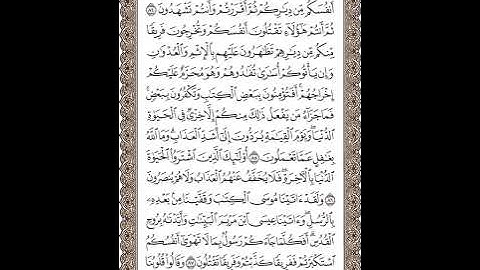 أَنفُسَكُم مِّن دِيَٰرِكُمْ ثُمَّ أَقْرَرْتُمْ وَأَنتُمْ تَشْهَدُونَ
ثُمَّ أَنتُمْ هَٰٓؤُلَآءِ تَقْتُلُونَ أَنفُسَكُمْ وَتُخْرِجُونَ فَرِيقًا
مِّنكُم مِّن دِيَٰرِهِمْ تَظَّٰهَرُونَ عَلَيْهِم بِالْإِثْمِ وَالْعُدْوَٰنِ
وَإِن يَأْتُوكُمْ أُسَٰرَىٰ تُفَٰدُوهُمْ وَهُوَ مُحَرَّمٌ عَلَيْكُمْ
إِخْرَاجُهُمْ أَفَتُؤْمِنُونَ بِبَعْضِ الْكِتَٰبِ وَتَكْفُرُونَ بِبَعْضٍ
فَمَا جَزَآءُ مَن يَفْعَلُ ذَٰلِكَ مِنكُمْ إِلَّا خِزْيٌ فِي الْحَيَوٰةِ
الدُّنْيَا وَيَوْمَ الْقِيَٰمَةِ يُرَدُّونَ إِلَىٰ أَشَدِّ الْعَذَابِ وَمَا اللَّهُ
بِغَٰفِلٍ عَمَّا تَعْمَلُونَ أُوْلَٰٓئِكَ الَّذِينَ اشْتَرَوُا الْحَيَوٰةَ
الدُّنْيَا بِالْأَخِرَةِ فَلَا يُخَفَّفُ عَنْهُمُ الْعَذَابُ وَلَا هُمْ يُنصَرُونَ
وَلَقَدَ اتَيْنَا مُوسَى الْكِتَٰبَ وَقَفَّيْنَا مِنۢ بَعْدِهِ
بِالرُّسُلِ وَءَاتَيْنَا عِيسَى ابْنَ مَرْيَمَ الْبَيِّنَٰتِ وَأَيَّدْنَٰهُ بِرُوحِ
الْقُدُسِ أَفَكُلَّمَا جَآءَكُمْ رَسُولٌۢ بِمَا لَا تَهْوَىٰ أَنفُسُكُمُ
اسْتَكْبَرْتُمْ فَفَرِيقًا كَذَّبْتُمْ وَفَرِيقًا تَقْتُلُونَ وَقَالُواْ قُلُوبُنَا